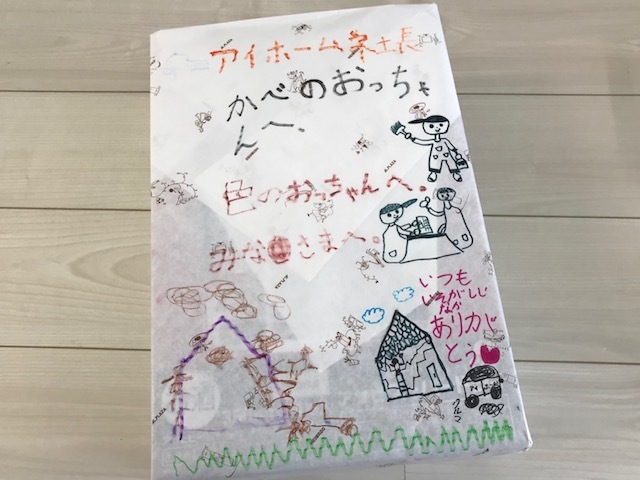 アイホーム社長
かべのおっちゃ
んへ、
色のおっちゃんへ.
みなさまへ。
いつも
いそがしい
なか
ありがとう
クルマ
アイ